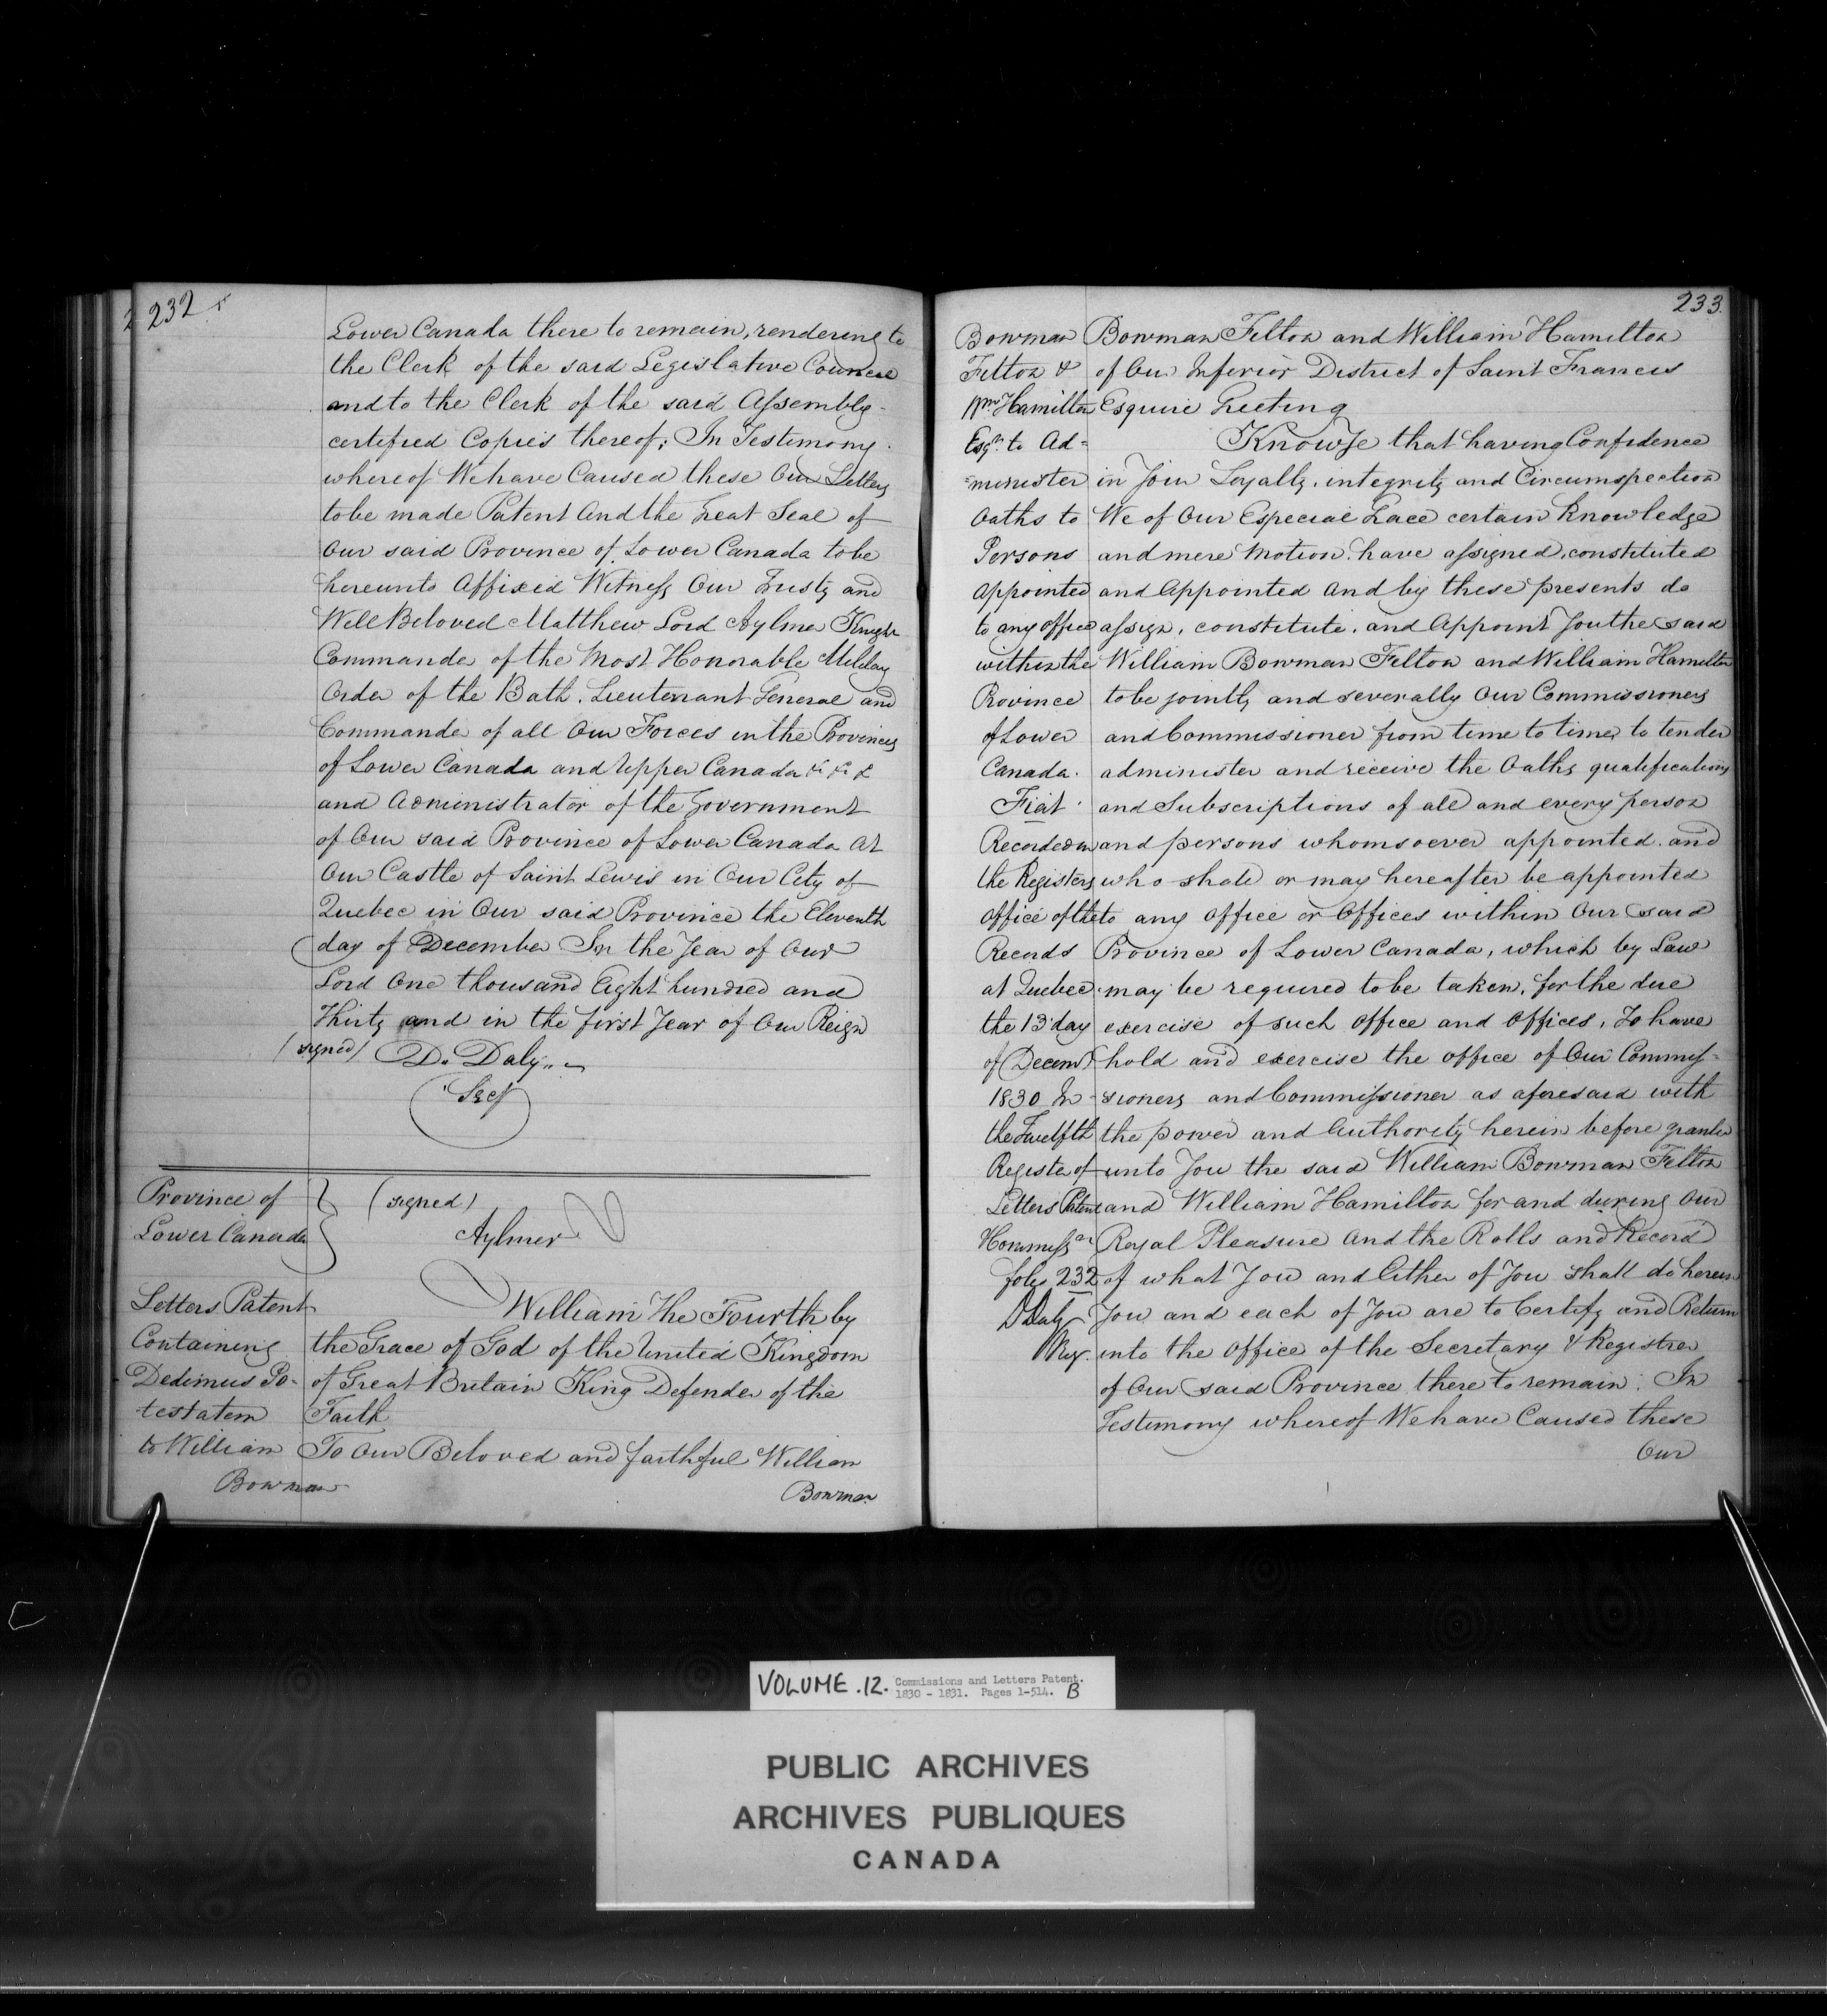 232
Lower Canada there to remain, rendering to
the Clerk of the said Legislative Council
and to the Clerk of the said Assembly
certified Copies thereof; In Testimony
whereof We have Caused these Our Letters
to be made Patent And the Great Seal of
Our said Province of Lower Canada to be
hereunto Affixed Witness Our Trusty and
Well Beloved Matthew Lord Aylmer Knight
Commander of the Most Honorable Military
Order of the Bath. Lieutenant General and
Commander of all Our Forces in the Provinces
of Lower Canada and Upper Canada &c &c &
and Administrator of the Government
of Our said Province of Lower Canada At
Our Castle of Saint Lewis in Our City of
Quebec in Our said Province the Eleventh
day of December In the Year of Our
Lord One thousand Eight hundred and
Thirty and in the first Year of Our Reign
(signed) D. Daly
Secy
Province of
Lower Canada
(signed)
Aylmer
Letters Patent
Containing
Dedimus Po-
testatem
to William
Bowman
William The Fourth by
the Grace of God of the United Kingdom
of Great Britain King Defender of the
Faith
To Our Beloved and faithful William
Bowman
233.
Bowman
Felton &
Wm Hamilton
Esqrs to Ad=
=minister
Oaths to
Persons
appointed
to any office
within the
Province
of Lower
Canada.
Fiat
Recorded in
the Registers
Office of the
Records
at Quebec
the 13 day
of Decem
1830 In
the Twelfth
Register of
Letters Patent
& Commissn
folio 232
D Daly
Reg.
Bowman Felton and William Hamilton
of Our Inferior District of Saint Francis
Esquire Greeting
Know Ye that having Confidence
in Your Loyalty, integrity and Circumspection
We of Our Especial Grace certain knowledge
and mere Motion have assigned, constituted
and Appointed And by these presents do
assign, constitute, and Appoint You the said
William Bowman Felton and William Hamilton
to be jointly and severally Our Commissioners
and Commissioner from time to time to tender
administer and receive the Oaths qualifications
and Subscriptions of all and every person
and persons whomsoever appointed and
who shall or may hereafter be appointed
to any Office or Offices within Our said
Province of Lower Canada, which by Law
may be required to be taken, for the due
exercise of such Office and Offices, To have
hold and exercise the office of Our Commis=
sioners and Commissioner as aforesaid with
the power and Authority herein before granted
unto You the said William Bowman Felton
and William Hamilton for and during Our
Royal Pleasure And the Rolls and Record
of what You and Either of You shall do herein
You and each of You are to Certify and Return
into the Office of the Secretary & Registrar
of Our said Province there to remain. In
Testimony whereof We have Caused these
Our
VOLUME .12. Commissions and Letters Patent.
1830 - 1831. Pages 1-514. B
PUBLIC ARCHIVES
ARCHIVES PUBLIQUES
CANADA